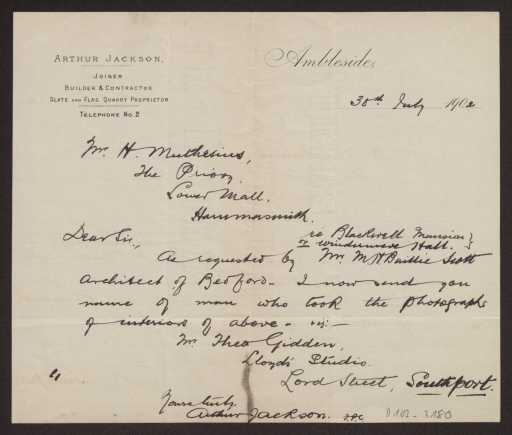 ARTHUR JACKSON,
JOINER
BUILDER & CONTRACTOR
SLATE AND FLAG QUARRY PROPRIETOR
TELEPHONE No. 2
Ambleside,
30th July 1902
Mr. H. Muthesius,
The Priory
Lower Mall.
Hammersmith.
Dear Sir,
re Blackwell Mansion
or Windermere Hall.
As requested by Mr. M H Baillie Scott
Architect of Bedford - I now send you
name of man who took the photographs
of interiors of above - viz:-
Mr. Theo Gidden,
Lloyds Studio.
Lord Street, Southport.
Yours truly.
Arthur Jackson.
D 102 - 3180